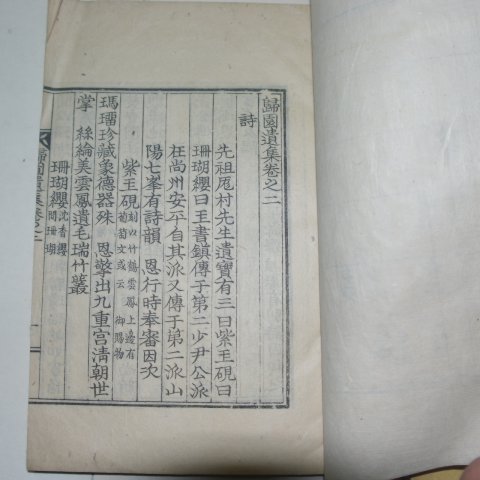 歸園遺集卷之二
詩
先祖巵村先生遺寶有三曰紫玉硯曰
珊瑚纓曰玉書鎮傳于第二少尹公派
在尚州安平自其派又傳于第二派山
陽七峯有詩韻 恩行時奉審因次
紫玉硯刻以竹鶴雲鳳上邊有葡萄文或云 御賜物
瑪瑠珍藏象德器殊 恩擎出九重宮清朝世
掌 絲綸美雲鳳遺毛瑞竹叢
珊瑚纓沈香纓間珊瑚
歸園遺集卷之二